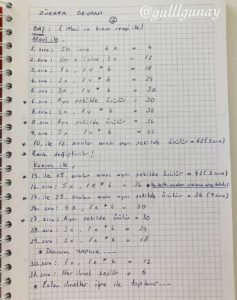 @gulllgunay
ZÜRAFA DEVAMI
②
BAŞ : ( Mavi ve krem rengi ile )
Mavi ile
1. sıra : SH. içine 6 x = 6
2. sıra : Her x üzerine 2x = 12
3. sıra : 1x, 1v * 6 = 18
4. sıra : 2x, 1v * 6 = 24
5. sıra : 3x, 1v * 6 = 30
6. sıra : Aynı şekilde örülür = 30
7. sıra : 4x, 1v * 6 = 36
8. sıra : Aynı şekilde örülür = 36
9. sıra : = 42
* 10. ile 12. sıralar arası aynı şekilde örülür = 42 (3 sıra)
* Renk değiştirilir!
Krem ile,
* 13. ile 15. sıralar arası aynı şekilde örülür = 42 (3 sıra)
* 16. sıra : 5x, 1 e * 6 = 36
* 17. ile 25. sıralar arası aynı şekilde örülür = 36
26. sıra : 4x, 1 e * 6 = 30
* 27. sıra : Aynı şekilde örülür = 30
28. sıra : 3x, 1 e * 6 = 24
29. sıra : 2x, 1 e * 6 = 18
30. sıra : 1x, 1 e * 6 = 12
31. sıra : Her ilmek kesilir = 6
* Kalan ilmekler iğne ile toplanır...